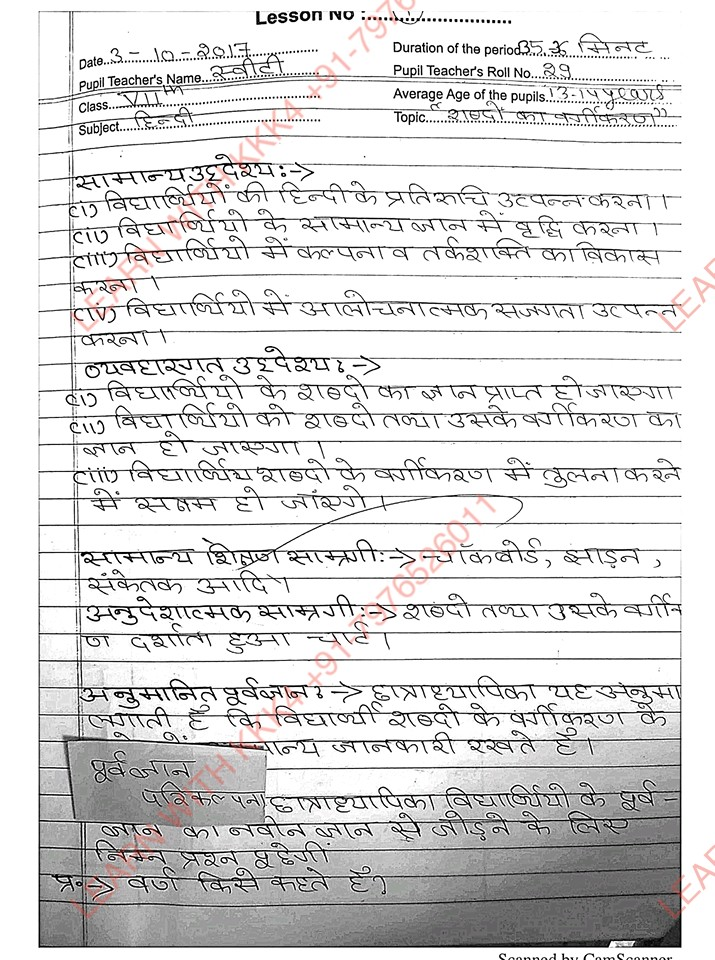 Lesson No :..................................
Date..3-10-2017..........................
Duration of the period 35 मिनट
Pupil Teacher's Name...स्वीटी
Pupil Teacher's Roll No..29
Class.....VIIth
Average Age of the pupils..13-14 years
Subject.....हिन्दी
Topic..."शब्दों का वर्गीकरण"
सामान्य उद्देश्य :->
(i) विद्यार्थियों की हिन्दी के प्रति रुचि उत्पन्न करना।
(ii) विद्यार्थियो के सामान्य ज्ञान में वृद्धि करना।
(iii) विद्यार्थियो में कल्पना व तर्कशक्ति का विकास
करना।
(iv) विद्यार्थियो में आलोचनात्मक सजगता उत्पन्न
करना।
व्यवहारगत उद्देश्य :->
(i) विद्यार्थियो के शब्दो का ज्ञान प्राप्त हो जाएगा
(ii) विद्यार्थियो को शब्दो तथा उसके वर्गीकरण का
ज्ञान हो जाएगा।
(iii) विद्यार्थिय शब्दो के वर्गीकरण में तुलना करने
में सक्षम हो जाँएगे।
सामान्य शिक्षण सामग्री :-> चॉकबोर्ड, झाड़न,
संकेतक आदि।
अनुदेशात्मक सामग्री :-> शब्दो तथा उसके वर्गीक
ण दर्शाता हुआ चार्ट।
अनुमानित पूर्वज्ञान :-> छात्राध्यापिका यह अनुमा
लगाती है कि विद्यार्थी शब्दो के वर्गीकरण के
मान्य जानकारी रखते है।
पूर्वज्ञान
परिकल्पना छात्राध्यापिका विद्यार्थियो के पूर्व-
ज्ञान का नवीन ज्ञान से जोड़ने के लिए
निम्न प्रश्न पूछेगी
प्र. -> वर्ण किसे कहते है?
LEARN WITH KKK4 +91-7976526011
LEARN WITH KKK4 +91-7976
LEAR
LEAR
Scanned by CamScanner